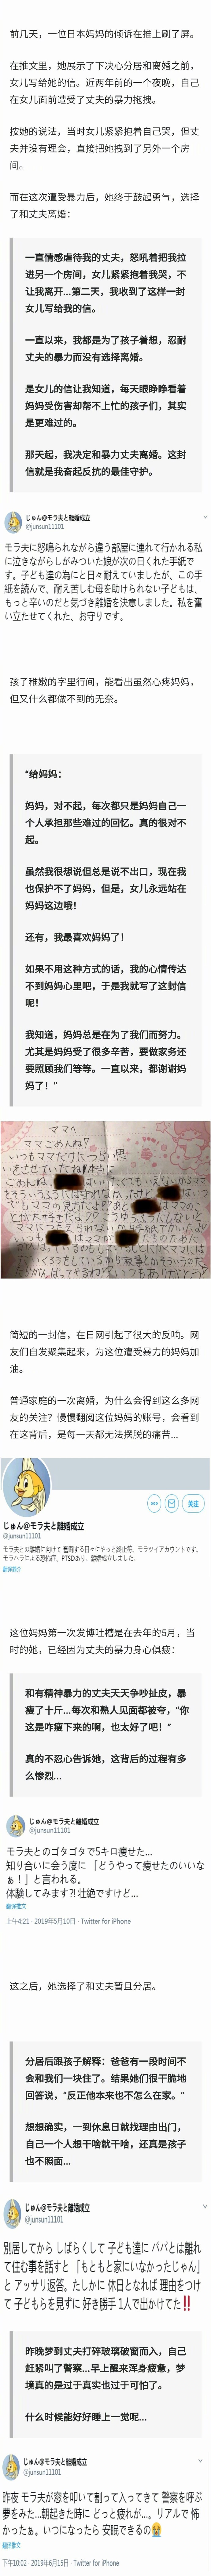 前几天，一位日本妈妈的倾诉在推上刷了屏。
在推文里，她展示了下决心分居和离婚之前，
女儿写给她的信。近两年前的一个夜晚，自己
在女儿面前遭受了丈夫的暴力拖拽。
按她的说法，当时女儿紧紧抱着自己哭，但丈
夫并没有理会，直接把她拽到了另外一个房
间。
而在这次遭受暴力后，她终于鼓起勇气，选择
了和丈夫离婚：
一直情感虐待我的丈夫，怒吼着把我拉
进另一个房间，女儿紧紧抱着我哭，不
让我离开...第二天，我收到了这样一封
女儿写给我的信。
一直以来，我都是为了孩子着想，忍耐
丈夫的暴力而没有选择离婚。
是女儿的信让我知道，每天眼睁睁看着
妈妈受伤害却帮不上忙的孩子们，其实
是更难过的。
那天起，我决定和暴力丈夫离婚。这封
信就是我奋起反抗的最佳守护。
じゅん@モラ夫と離婚成立
@junsun11101
モラ夫に怒鳴られながら違う部屋に連れて行かれる私
に泣きながらしがみついた娘が次の日くれた手紙で
す。子ども達の為にと日々耐えていましたが、この手
紙を読んで、耐え苦しむ母を助けられない子どもは、
もっと辛いのだと気づき離婚を決意しました。私を奮
い立たせてくれた、お守りです。
孩子稚嫩的字里行间，能看出虽然心疼妈妈，
但又什么都做不到的无奈。
“给妈妈：
妈妈，对不起，每次都只是妈妈自己一
个人承担那些难过的回忆。真的很对不
起。
虽然我很想说但总是说不出口，现在我
也保护不了妈妈，但是，女儿永远站在
妈妈这边哦！
还有，我最喜欢妈妈了！
如果不用这种方式的话，我的心情传达
不到妈妈心里吧，于是我就写了这封信
呢！
我知道，妈妈总是在为了我们而努力。
尤其是妈妈受了很多辛苦，要做家务还
要照顾我们等等。一直以来，都谢谢妈
妈了！”
ママへ
ママごめんね
いつもママだけにつらい思
简短的一封信，在日网引起了很大的反响。网
友们自发聚集起来，为这位遭受暴力的妈妈加
油。
普通家庭的一次离婚，为什么会得到这么多网
友的关注？慢慢翻阅这位妈妈的账号，会看到
在这背后，是每一天都无法摆脱的痛苦...
关注
じゅん@モラ夫と離婚成立
@junsun11101
モラ夫との離婚に向けて 奮闘する日々にやっと終止符。モラツイアカウントです。
モラハラによる恐怖症、PTSDあり。離婚成立しました。
翻译简介
这位妈妈第一次发博吐槽是在去年的5月，当
时的她，已经因为丈夫的暴力身心俱疲：
和有精神暴力的丈夫天天争吵扯皮，暴
瘦了十斤...每次和熟人见面都被夸，“你
这是咋瘦下来的啊，也太好了吧！”
真的不忍心告诉她，这背后的过程有多
么惨烈...
じゅん@モラ夫と離婚成立
@junsun11101
モラ夫とのゴタゴタで5キロ痩せた...
知り合いに会う度に 「どうやって痩せたのいいな
ぁ！」と言われる。
体験してみます?! 壮絶ですけど...
翻译推文
上午4:21 · 2019年5月10日 · Twitter for iPhone
这之后，她选择了和丈夫暂且分居。
分居后跟孩子解释：爸爸有一段时间不
会和我们一块住了。结果她们很干脆地
回答说，“反正他本来也不怎么在家。”
想想确实，一到休息日就找理由出门，
自己一个人想干啥就干啥，还真是孩子
也不照面...
じゅん@モラ夫と離婚成立
@junsun11101
別居してから しばらくして 子ども達に パパとは離れ
て住む事を話すと 「もともと家にいなかったじゃん」
と アッサリ返答。たしかに 休日となれば 理由をつけ
て 子どもらを見ずに 好き勝手 1人で出かけてた‼
昨晚梦到丈夫打碎玻璃破窗而入，自己
赶紧叫了警察...早上醒来浑身疲惫，梦
境真的是过于真实也过于可怕了。
什么时候能好好睡上一觉呢...
じゅん@モラ夫と離婚成立
@junsun11101
昨夜 モラ夫が窓を叩いて割って入ってきて 警察を呼ぶ
夢をみた...朝起きた時に どっと疲れが...。リアルで 怖
かったぁ。いつになったら 安眠できるの😭
翻译推文
下午10:02 · 2019年6月15日 · Twitter for iPhone